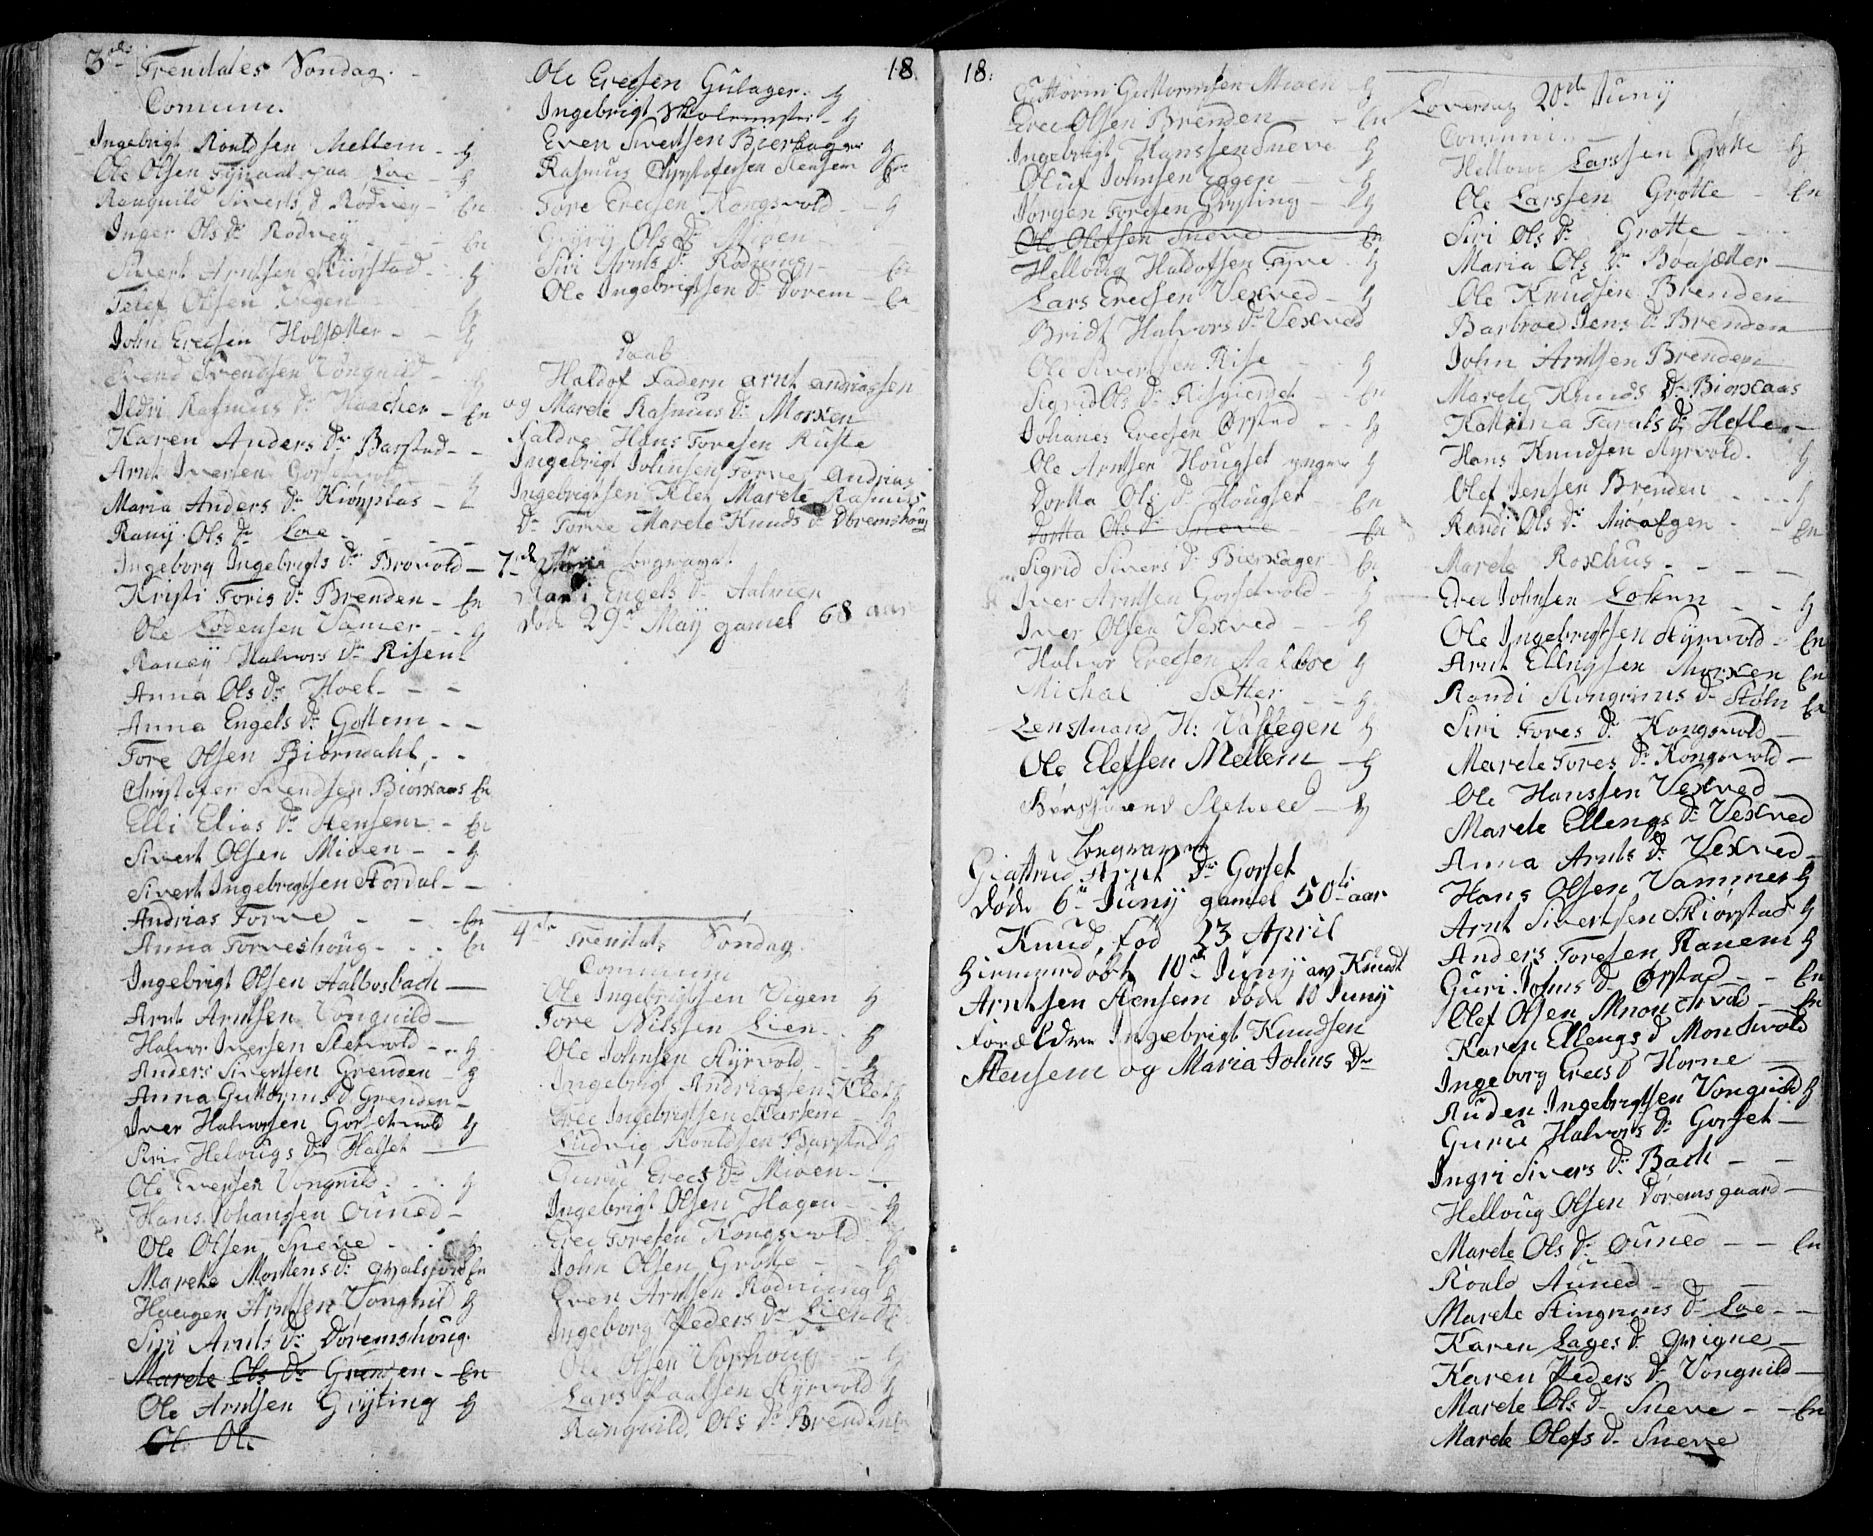 3die Trenitates Søndag.
Comuni.
Ingebrigt Roaldsen Mellem - g
Ole Olsen paa Loe - g
Ranguild Siverts d. Rødvey - En
Inger Ols dr Rødvey - En
Sivert Arntsen Skiørstad - g
Olsen Vigen g
John Erecsen Holsætter - g
Svend Svendsen Vongnild - g
Ildri Rasmus dr Haacher - En
Karen Anders Dr Barstad - -
Arnt Iversen - g
Maria Anders Dr -
Ranij Ols dr Loe - - -
Ingeborg Ingebrigts dr Brovold -
Kristi Foris dr Brenden - En
Ole Lodensen Vamer - - g
Raneij Halvors Dr Risen -
Anna Ols dr Hoel - - -
Anna Engels dr Gottem - -
Tore Olsen Biørndahl, - -
Christofer Svendsen Biørkaas En
Elli Elias dr Stensem - En
Sivert Olsen Mioen - - g
Sivert Ingebrigtsen Stordal - -
Andrias Torve - - - En
Anna Torveshoug - - - En
Ingebrigt Olsen Aalbosbach -
Arnt Arntsen Vongnild -
Halvor Iversen Sletvold - - g
Anders Sivertsen Grenden - g
Anna Guttorms d. Grenden -
Iver Halvorsen Gorsetvold g
Siri Helvigs dr Halset -
Ole Evensen Vongnild - - g
Hans Johansen Ouned -
Ole Olsen Sneve - - g
Marete Mortens dr En
Haagen Arntsen Vongnild g
Siri Arnts dr Doremshoug.
Marete Ols Dr Grenden - En
Ole Arntsen Grijting g
Ole Ole
Ole Erecsen Gulager - g
Ingebrigt Skolemester - g
Even Sivertsen Bierkager g
Rasmus Christofersen Stensem En
Tore Erecsen Kongsvold - g
Ols dr Mioen
Siri Arnts dr Rødning - En
Ole Ingebrigtsen dr Dorem - En
Daab
Haldof Fadern Arnt Andriassen
og Marete Rasmus dr Morken
Faldre Hans Toresen Riise
Ingebrigt Johnsen Torve, Andrias
Ingebrigtsen Klet Marete Rasmus
dr Torve Marete Knuds dr Doremshoug
7de Junii begravet.
Mari Engels dr Aalmen
døde 29de Maij gamel 68 aar
4de Trenitat. Søndag.
Commun
Ole Ingebrigtsen Vigen g
Tore Nilssen Lien - g
Ole Johnsen Styrvold - g
Ingebrigt Andriassen Klet g
Erec Ingebrigtsen g
Ludvig Roaldsen Barstad g
Guru Erecs dr Mioen -
Ingebrigt Olsen Hagen - g
Erec Toresen Kongsvold - g
John Olsen Grøtte - g
Even Arntsen Rødning g
Ingeborg Peders dr Lien
Ole Olsen Sørhoug - g
Lars Paalsen Styrvold g
Ranguild Ols dr Brenden
18.
18:
Guttormsen Mioen g
Erec Olsen Brenden - - En
Ingebrigt Hanssen Sneve g
Oluf Johnsen Eggen - - g
Jørgen Toresen Grijting - g
Ole Olofsen Sneve - En
Hellvig Haldofsen Torve - g
Lars Erecsen Vexved - g
Bridt Halvors dr Vexved
Ole Sivertsen Rise - g
Sigrid Ols dr Risgierdet - En
Johanes Erecsen Ørstad - g
Ole Arntsen Hougset g
Dortta Ols dr Hougset - En
Dortta Ols dr Sneve - En
Sigrid Sivers dr Bierkager - En
Iver Arntsen Gorsetvold - g
Iver Olsen Vexved - - g
Halvor Erecsen Aalboe g
Michal Sætter - - g
Lenstmand H: Vaslegen g
Ole Elefsen Mellem - g
g
begraven
Giertrud Arnt dr Gorset
døde 6te Junij gamel 50ti aar
Knud, fød 23 April
hiemmedøbt 10de Junij av Knudt
Arntsen Stensem døde 10 Junij
forældre Ingebrigt Knudsen
Stensem og Maria Johns Dr
Løverdag 20de Junij
Comuni.
Larssen Grøtte g
Ole Larssen Grøtte - En
Siri Ols dr Grøtte - -
Maria Ols dr Boasætter -
Ole Knudsen Brenden
Barbroe Jens dr Brenden
John Arntsen Brenden
Marete Knuds Dr Biørkaas
Hans Knudsen Styrvold. g
Olef Jensen Brenden - - g
Randi Ols dr - En
Marete Roxhus - - - -
Erec Johnsen Løkken - - g
Ole Ingebrigtsen Styrvold - En
Arnt Ellingsen Morken En
Randi Stengrims dr Støln En
Siri Tores dr Kongsvold -
Marete Tores dr Kongsvold -
Ole Hanssen Vexved -
Marete Ellengs dr Vexved
Anna Arnts dr Vexved -
Hans Olsen Vammer g
Arnt Sivertsen Skiørstad g
Anders Toresen Ranem g
Guri Johns dr Ørstad - - En
Olef Olsen Mnonchvold - En
Karen Ellengs d Monchvold
Ingeborg Erecs d Horne -
Auden Ingebrigtsen Vongnild g
Gurue Halvors dr Gorset -
Ingri Sivers dr Bach - -
Helloug Olsen Doremsgaard -
Marete Ols dr Ouned - - En
Roald Auned - -
Marete Stingrims dr Loe - -
Karen Lages dr Qvigne -
Karen Peders dr Vongnild -
Marete Ols dr Sneve - - En
Marete Olefs dr Sneve